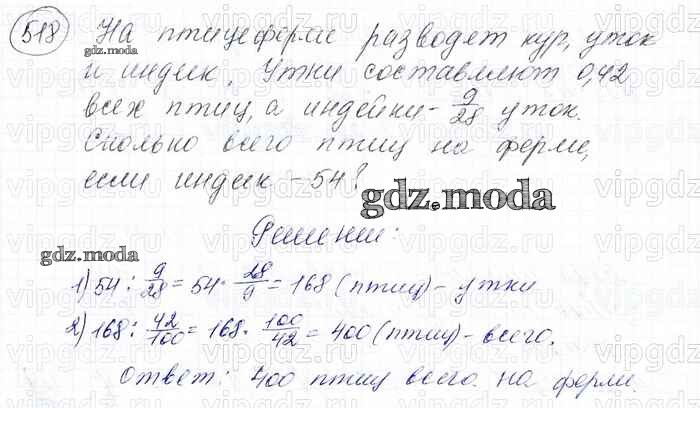 518 На птицеферме разводят кур, уток
gdz.moda
и индеек. Утки составляют 0,42
всех птиц, а индейки - 9/28 уток.
Сколько всего птиц на ферме,
если индеек - 54?
gdz.moda
Решение:
gdz.moda
1) 54 : 9/28 = 54 · 28/9 = 168 (птиц) - утки
2) 168 : 42/100 = 168 · 100/42 = 400 (птиц) - всего.
Ответ: 400 птиц всего на ферме.